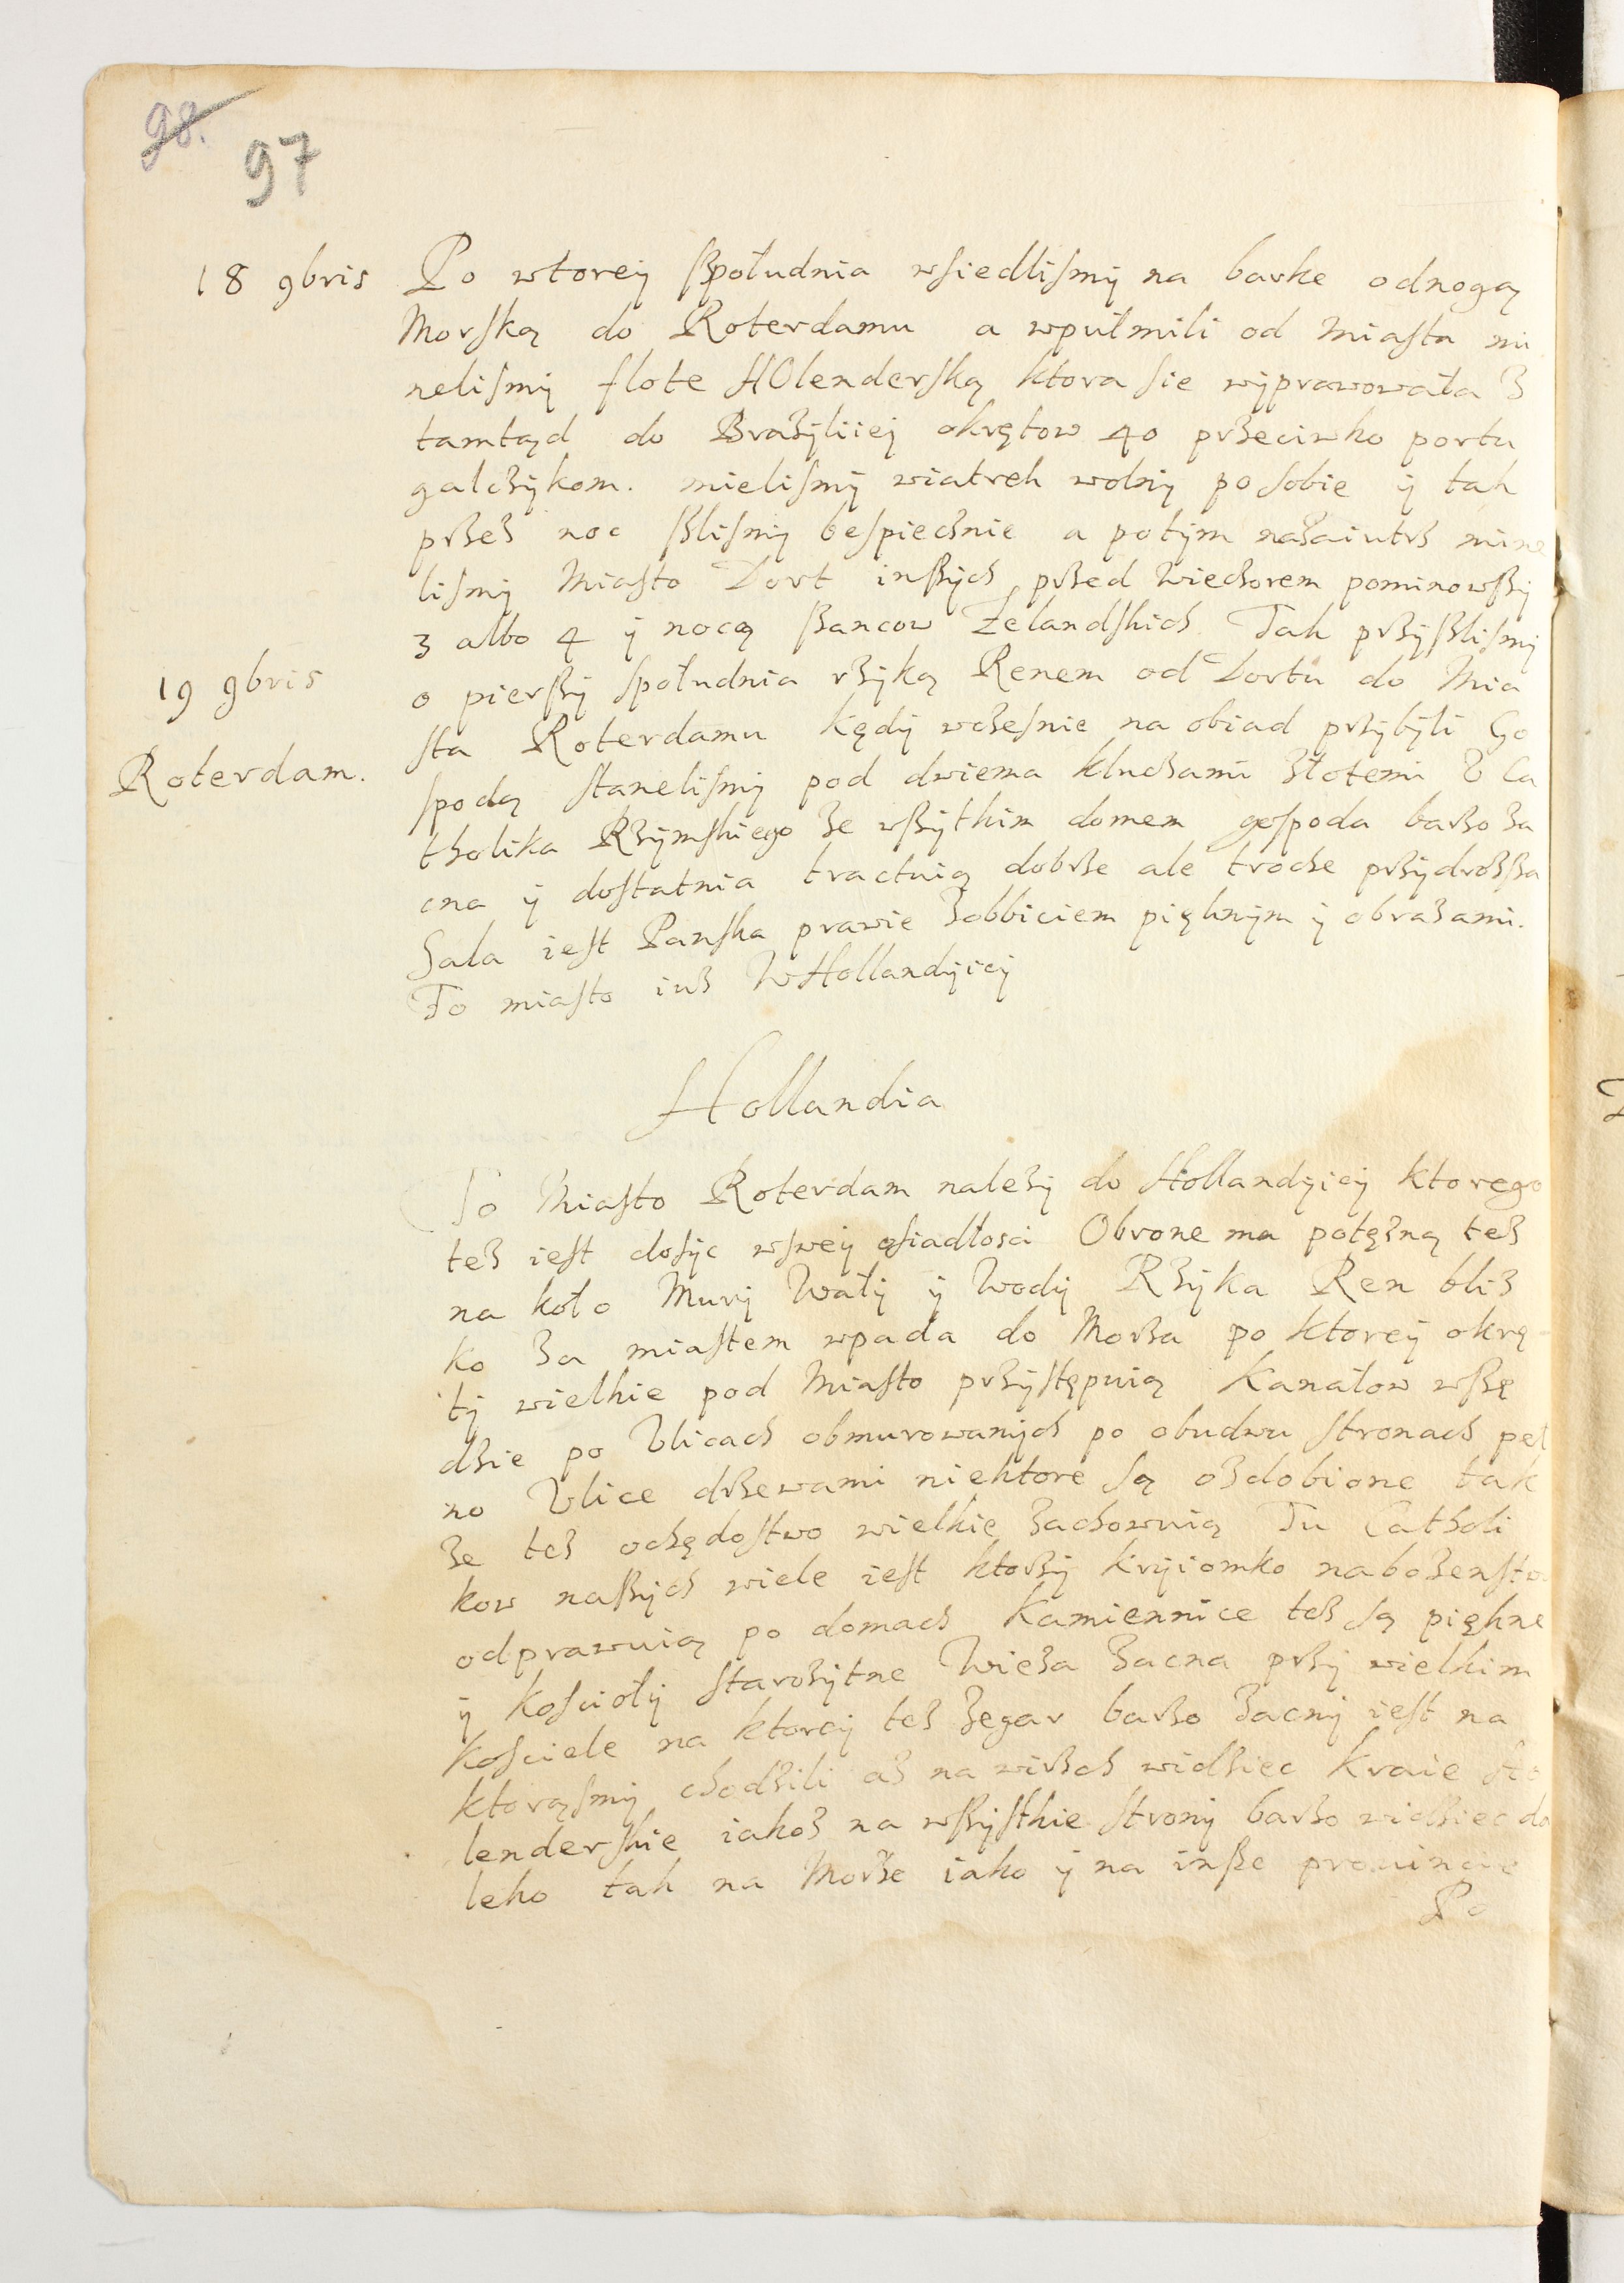 98.
97
18 9bris Po wtorey społudnia wsiedlismy na barke odnogą
Morską do Roterdamu a wpułmili od Miasta mi
nelismy flote HOlenderską ktora sie wyprawowała z
tamtąd do Brazyliiej okrętow 40 przeciwko portu
galczykom. mielismy wiatrek wolny po sobie y tak
przez noc szlismy bespiecznie a potym nazaiutrz mine
lismy Miasto Dort inszych przed wieczorem pominowszy
3 albo 4 y nocą szancow Zelandskich Tak przyszlismy
19 9bris
o pierszy społudnia rzyką Renem od Dortu do Mia
sta Roterdamu kędy wczesnie na obiad przybyli Go
Roterdam.
spodą stanelismy pod dwiema kluczami złotemi V Ca
tholika Rzymskiego ze wszytkim domem gospoda barzo za
cna y dostatnia tractuią dobrze ale troche przydrozsza
Sala iest Panska prawie zobbiciem pięknym y obrazami.
To miasto iuz WHollandyiey
Hollandia
To Miasto Roterdam nalezy do Hollandyiey ktorego
tez iest dosyc wswey osiadłosci Obrone ma potęzną tez
na koło Mury Wały y Wody Rzyka Ren bliz
ko za miastem wpada do Morza po ktorey okrę
ty wielkie pod Miasto przystępuią Kanałow wszę
dzie po Vlicach obmurowanych po obudwu stronach peł
no Vlice drzewami niektore są ozdobione tak
ze tez ochędostwo wielkie zachowuią Tu Catholi
kow naszych wiele iest ktorzy kryiomko nabozenstwo
odprawuią po domach Kamiennice tez są piękne
y koscioły starozytne Wieza zacna przy wielkim
Kosciele na ktorey tez zegar barzo zacny iest na
ktorąsmy chodzili az na wirzch widziec kraie Ho
lenderskie iakoz na wszystkie strony barzo widziec da
leko tak na Morze iako y na insze prouincie
Po